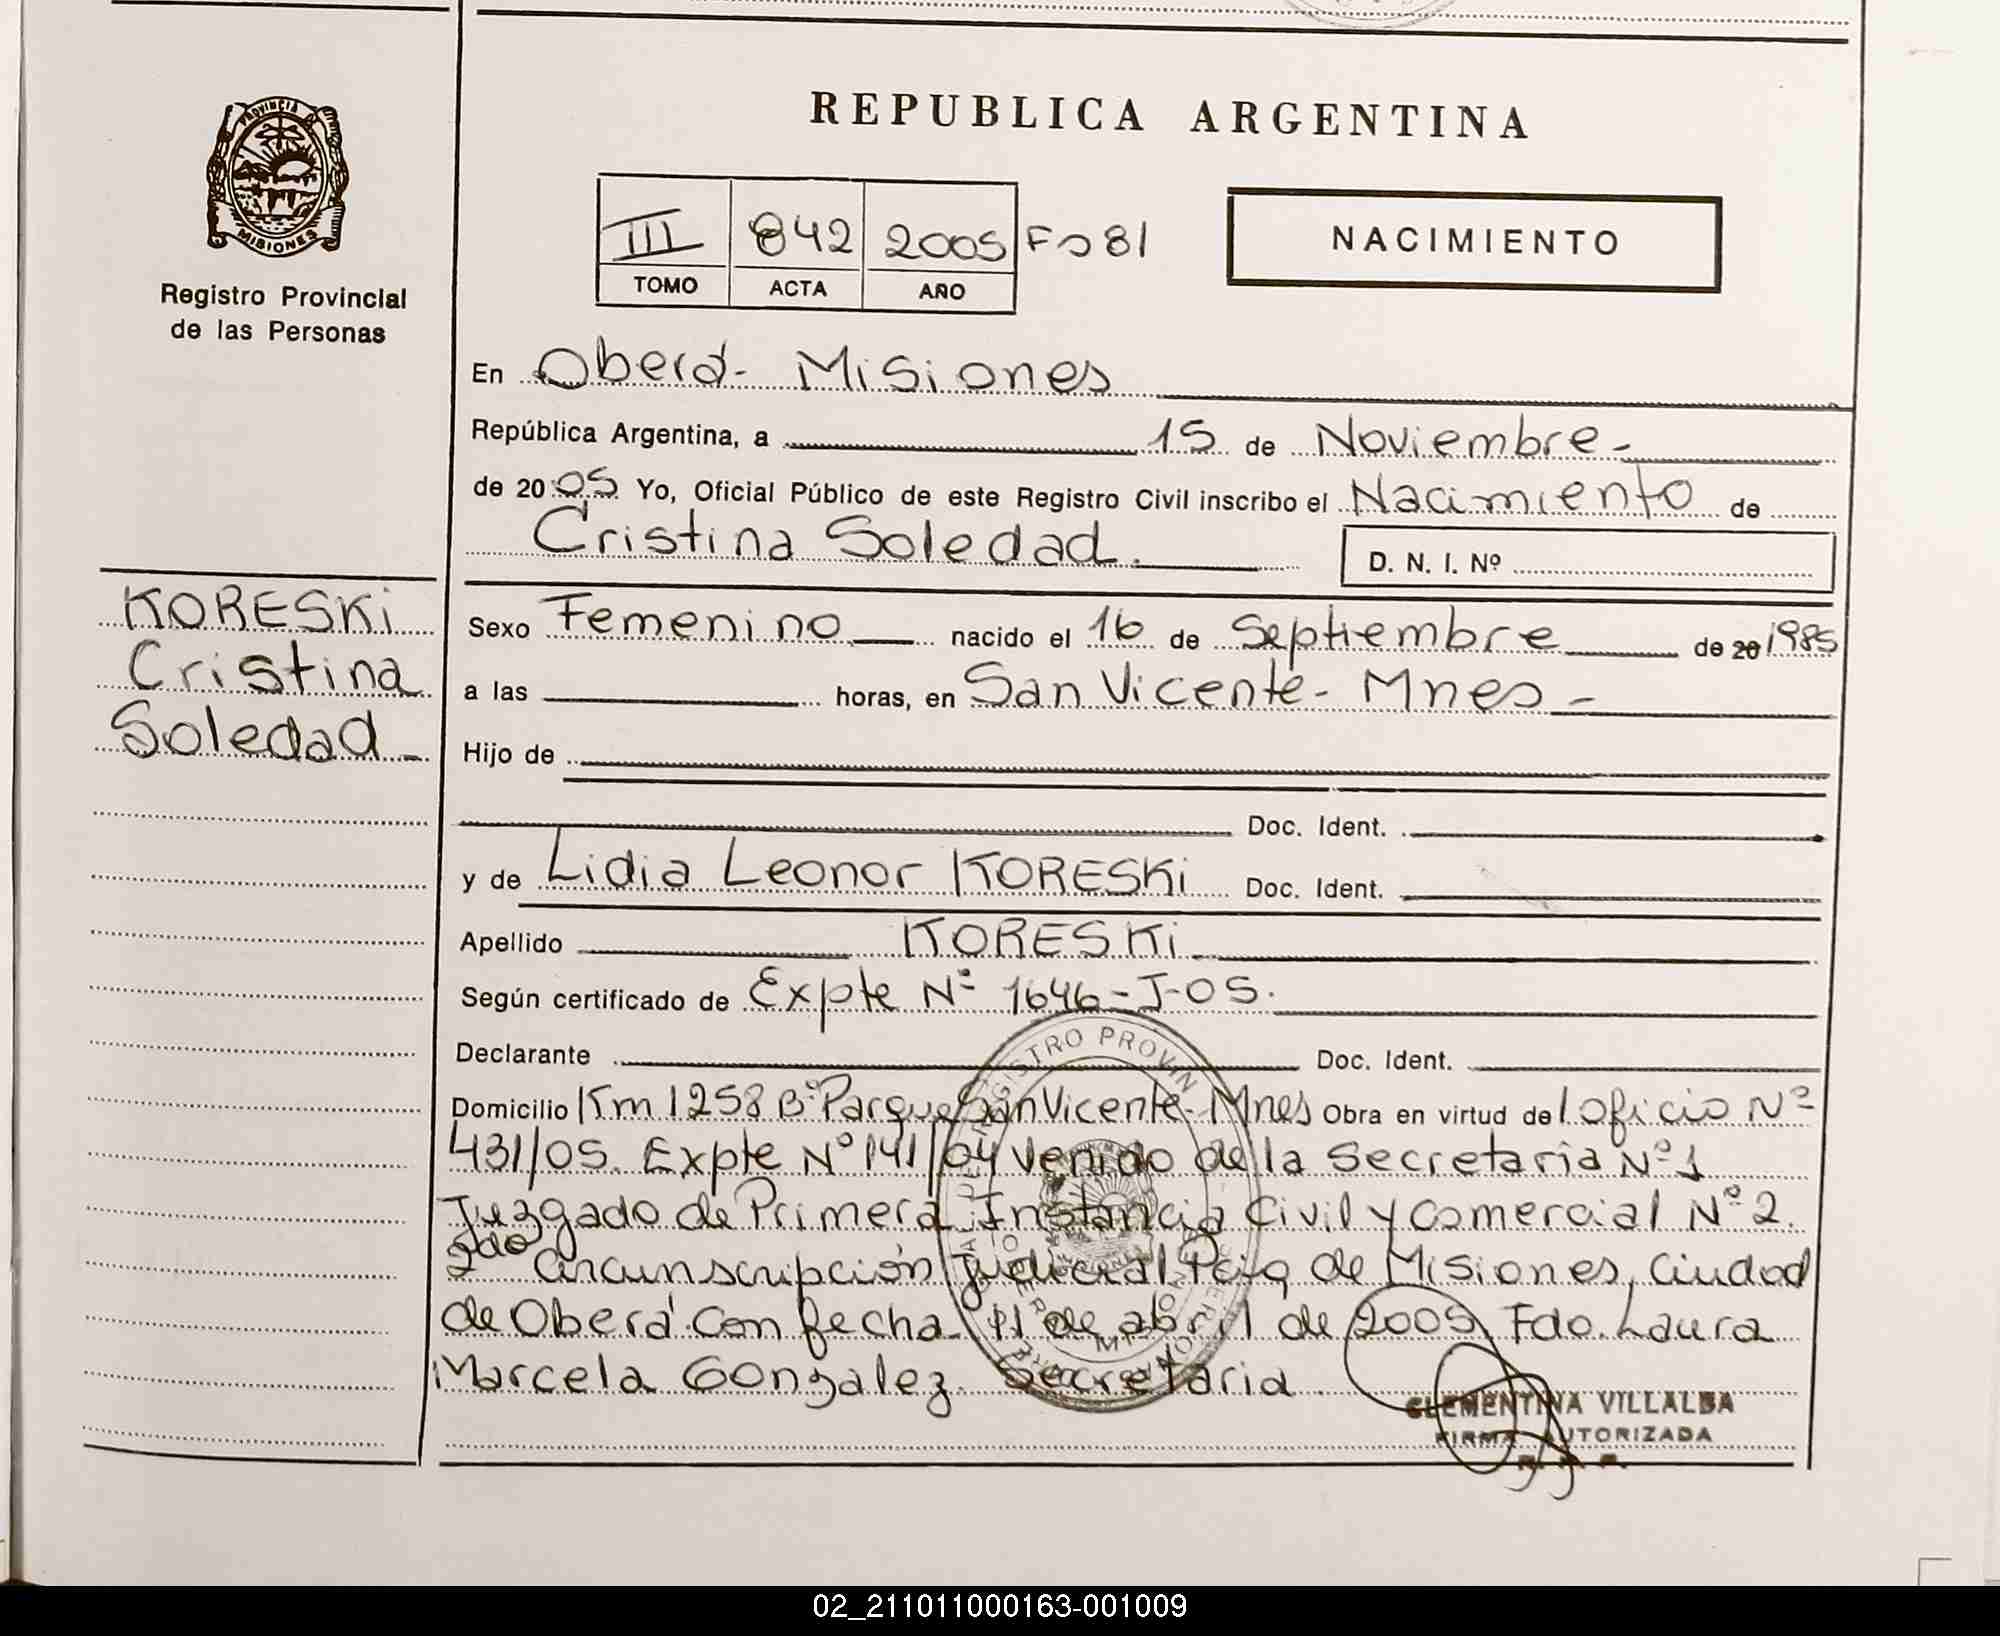 REPUBLICA ARGENTINA
PROVINCIA
MISIONES
Registro Provincial
de las Personas
III 842 2005 Fo 81
TOMO ACTA AÑO
NACIMIENTO
En Oberá- Misiones
República Argentina, a 15 de Noviembre-
de 2005 Yo, Oficial Público de este Registro Civil inscribo el Nacimiento de
Cristina Soledad.
D. N. I. Nº
KORESKi
Cristina
Soledad-
Sexo Femenino nacido el 16 de Septiembre de 20 1985
a las horas, en San Vicente- Mnes-
Hijo de
Doc. Ident.
y de Lidia Leonor KORESKi Doc. Ident.
Apellido KORESKi
Según certificado de Expte Nº 1646-J-05.
Declarante Doc. Ident.
Domicilio Km 1258 Bº Parque San Vicente- Mnes Obra en virtud del oficio Nº
431/05. Expte Nº 141/04 venido de la Secretaria Nº 1
Juzgado de Primera Instancia Civil y Comercial Nº 2.
2da Circunscripción Judicial Pcia de Misiones, Ciudad
de Oberá con fecha 11 de abril de 2005 Fdo. Laura
Marcela Gonzalez. Secretaria.
REGISTRO PROVIN
CLEMENTINA VILLALBA
FIRMA AUTORIZADA
02_211011000163-001009